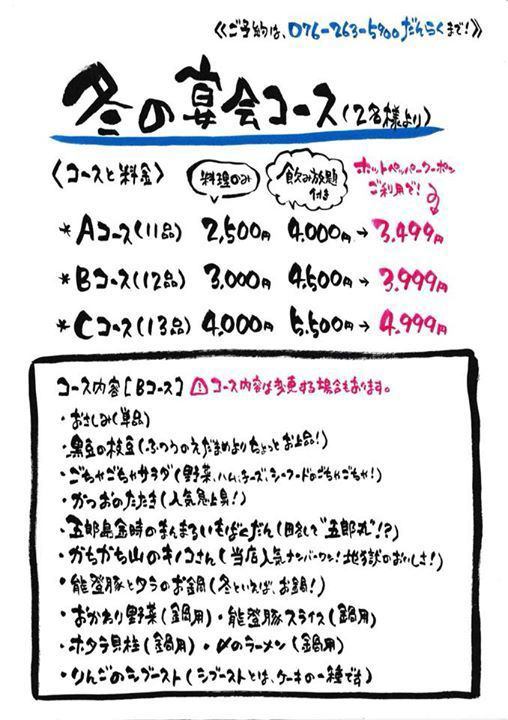 《ご予約は、076-263-5900だんらくまで!》
冬の宴会コース(2名様より)
〈コースと料金〉 料理のみ 飲み放題付き ホットペッパークーポンご利用で!
*Aコース(11品) 2,500円 4,000円→3,499円
*Bコース(12品) 3,000円 4,500円→3,999円
*Cコース(13品) 4,000円 5,500円→4,999円
コース内容[Bコース] ⚠コース内容は変更する場合もあります。
・おさしみ(単品)
・黒豆の枝豆(ふつうのえだまめよりちょっとお上品!)
・ごちゃごちゃサラダ(野菜、ハム、チーズ、シーフードのごちゃごちゃ!)
・かつおのたたき(人気急上昇!)
・五郎島金時のまんまるいもばくだん(略して"五郎丸"!?)
・かちかち山のキノコさん(当店人気ナンバーワン!地獄のおいしさ!)
・能登豚とタラのお鍋(冬といえば、お鍋!)
・おかわり野菜(鍋用)・能登豚スライス(鍋用)
・ホタテ貝柱(鍋用)・〆のラーメン(鍋用)
・りんごのシブースト(シブーストとは、ケーキの一種です)